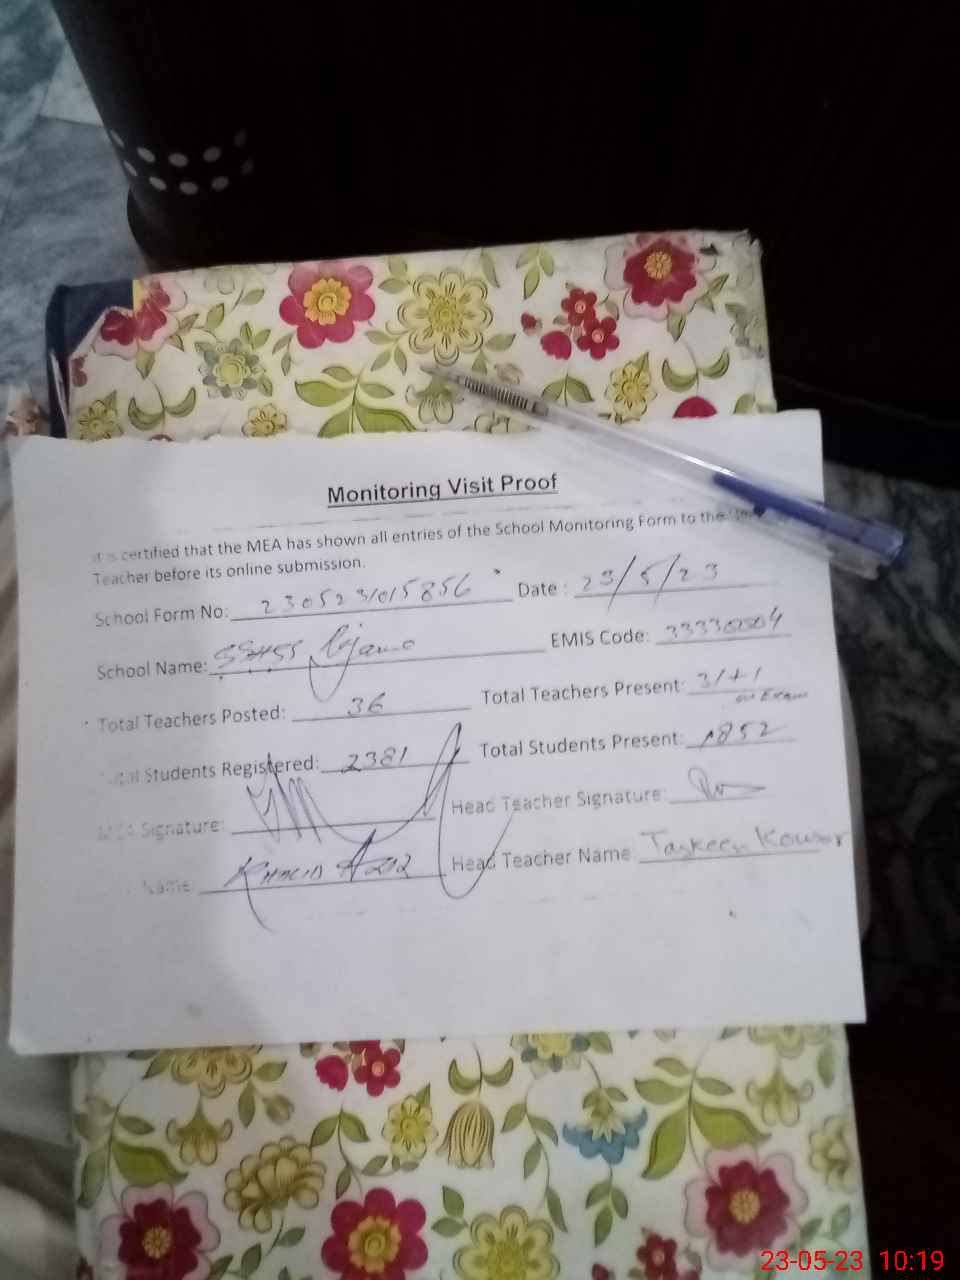 Monitoring Visit Proof
It is certified that the MEA has shown all entries of the School Monitoring Form to the
Teacher before its online submission.
School Form No: 2305231015856 Date : 23/5/23
School Name: EMIS Code: 33330504
Total Teachers Posted: 36 Total Teachers Present: 31+1
on Exam
Total Students Registered: 2381 Total Students Present: 1852
MEA Signature: Head Teacher Signature:
Name: Khalid Aziz Head Teacher Name: Taskeen Kousar
23-05-23 10:19